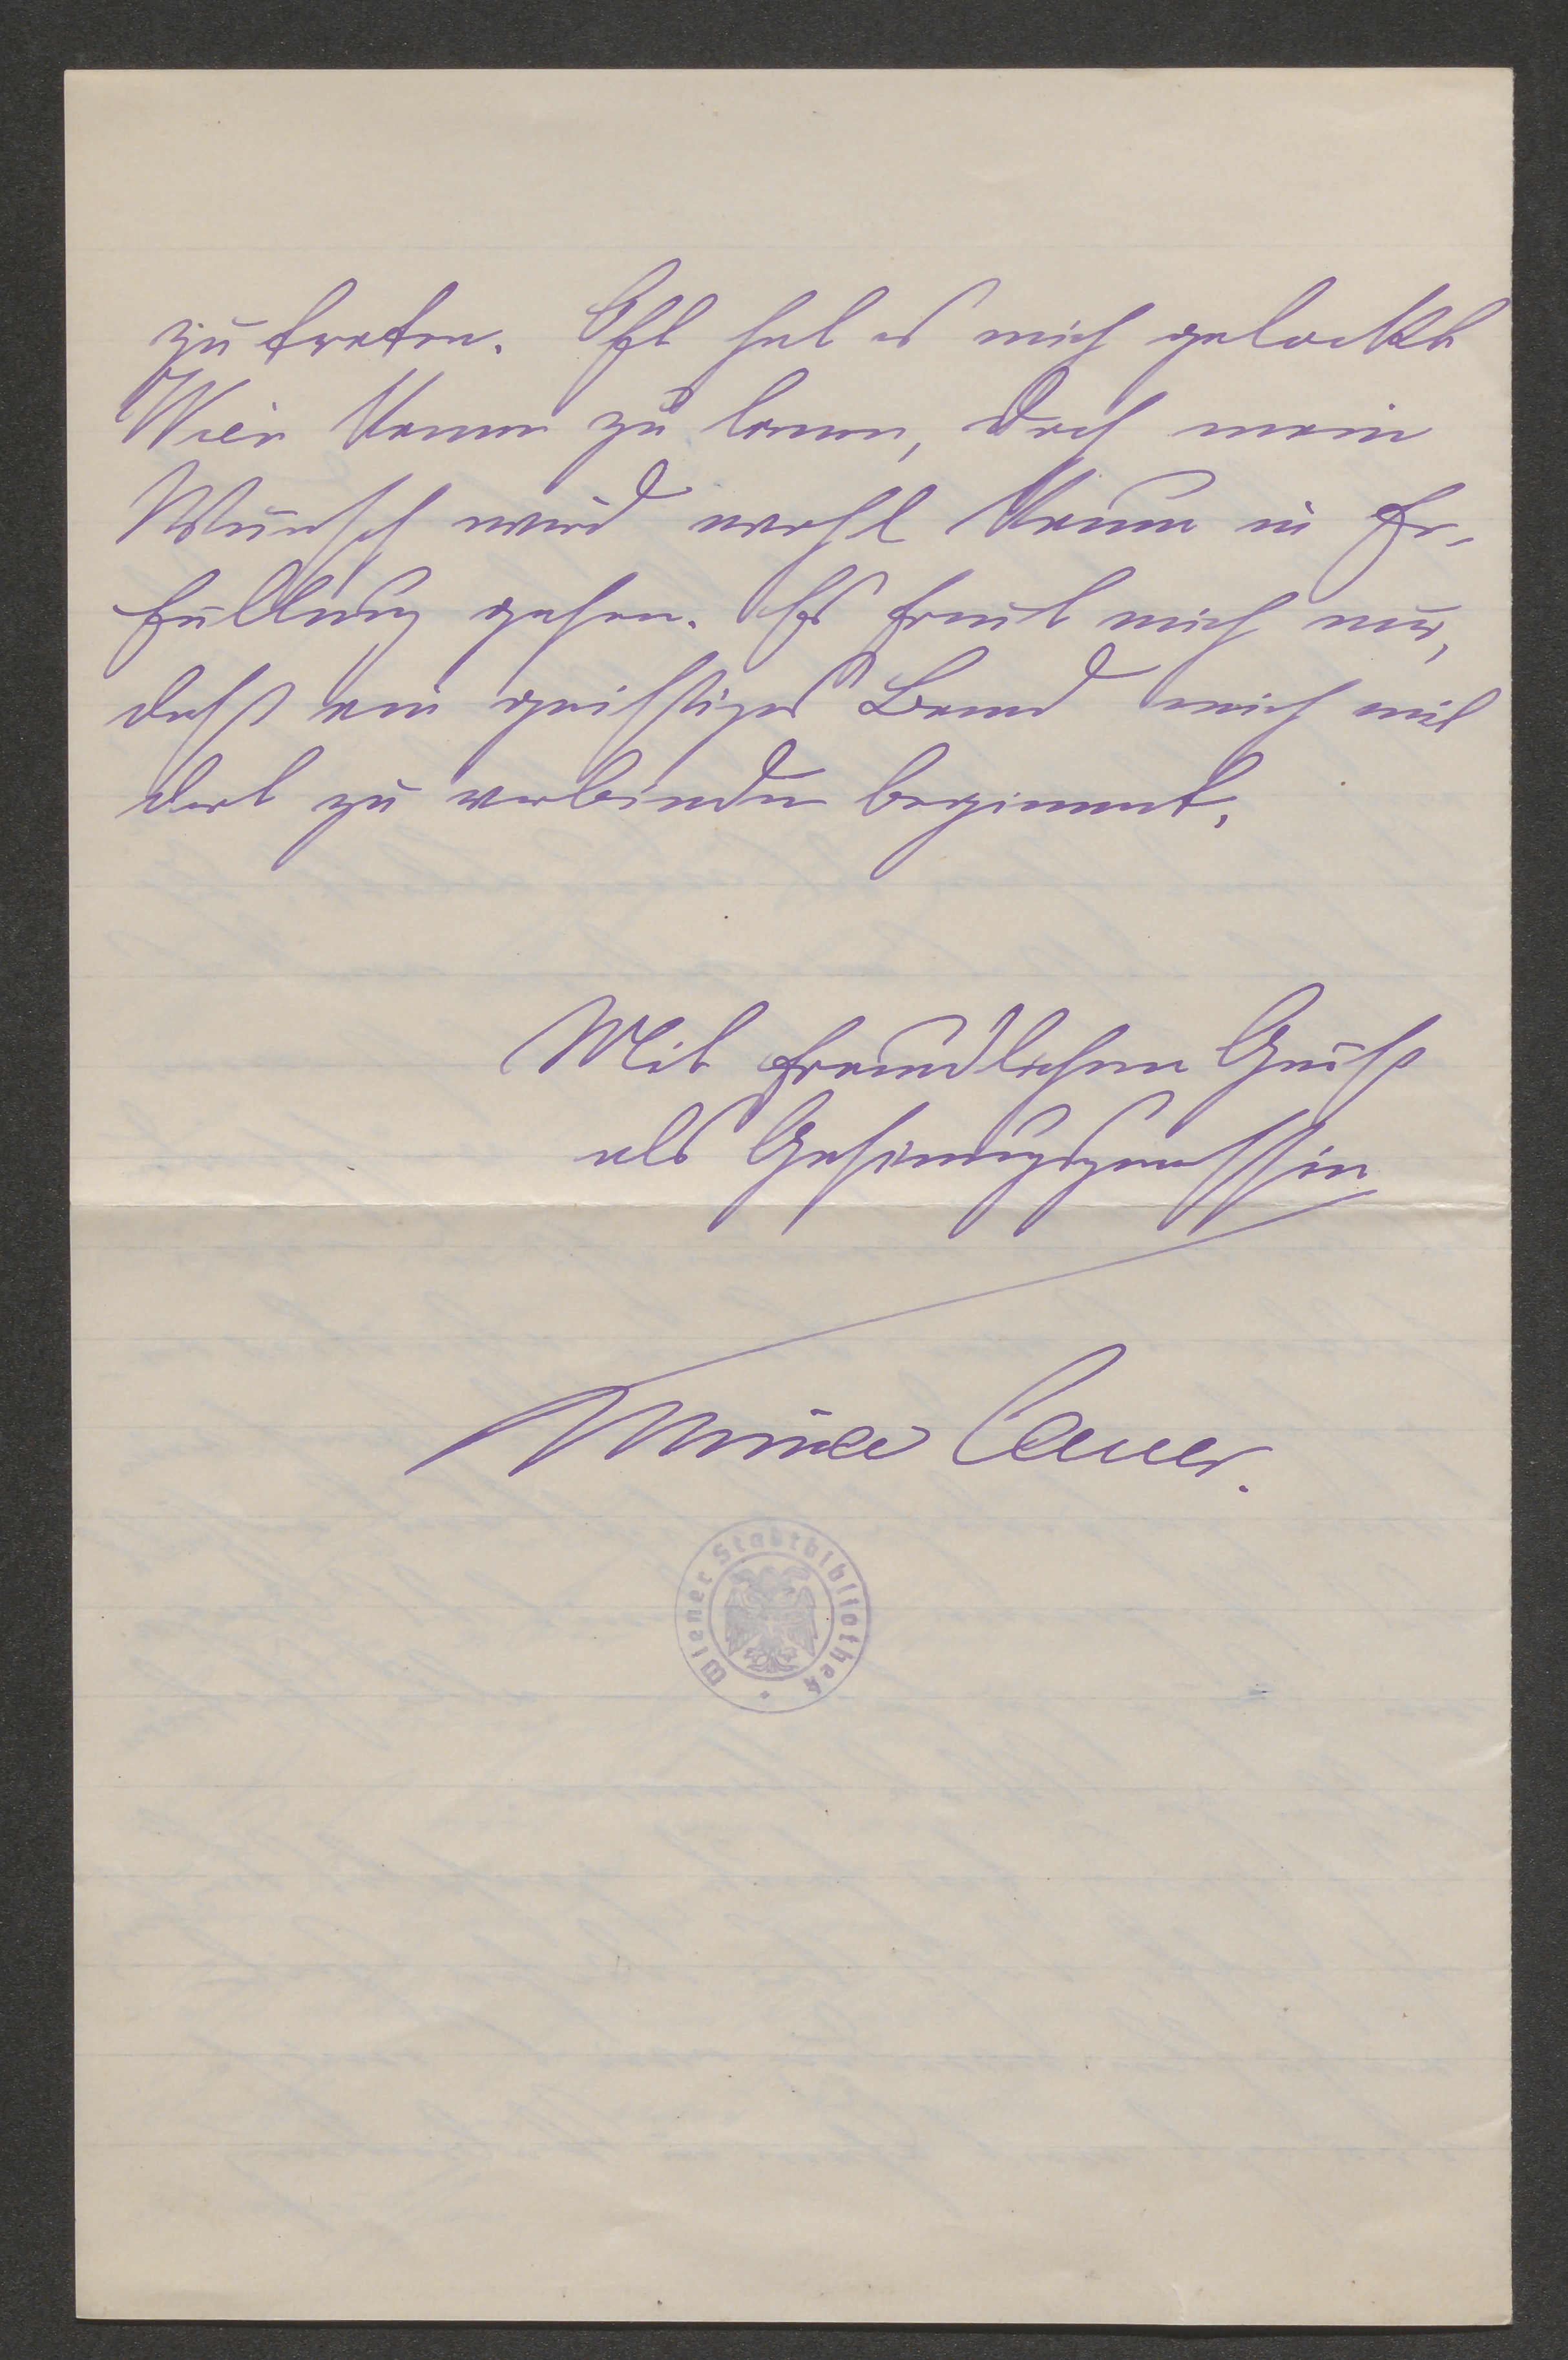 zu treten. Oft hat es mich gelockt
Wien kennen zu lernen, doch mein
Wunsch wird wohl kaum in Er-
füllung gehen. Es freut mich nur,
daß ein geistiges Band mich mit
dort zu verbinden beginnt.
Mit freundlichem Gruß
als Gesinnungsgenossin
Minna Cauer.
Wiener Stadtbibliothek